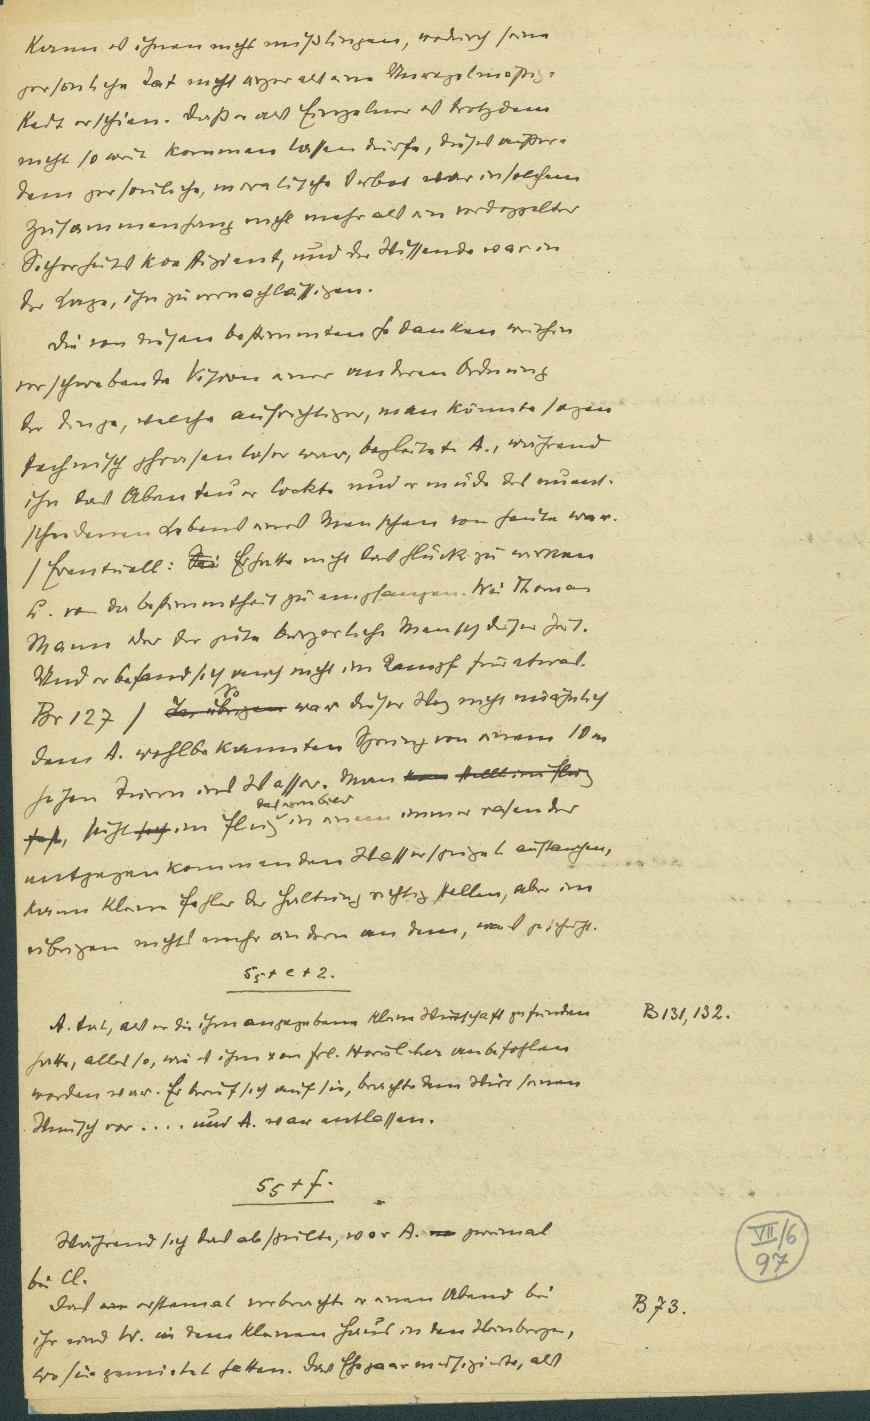 kann es ihnen nicht mißlingen, wodurch seine
persönliche Tat nicht ärger als eine Unregelmäßig-
keit erschien. Daß er als Einzelner es trotzdem
nicht so weit kommen lassen dürfe, dieses außer-
dem persönliche, moralische Verbot war in solchem
Zusammenhang nicht mehr als ein verdoppelter
Sicherheitskoeffizient, und der Wissende war in
der Lage, ihn zu vernachlässigen.
Die von diesen bestimmten Gedanken weithin
vorschwebende Vision einer anderen Ordnung
der Dinge, welche aufrichtiger, man könnte sagen
technisch phrasenloser war, begleitete A., während
ihn das Abenteuer lockte und er müde des unent-
schiedenen Lebens eines Menschen von heute war.
/ Eventuell: Er hatte nicht das Glück zu wirken
u. von da Bestimmtheit zu empfangen. Wie Thomas
Mann oder der gute bürgerliche Mensch dieser Zeit.
Und er befand sich auch nicht im Kampf für etwas.
Br 127 / Im übrigen So war dieser Weg nicht unähnlich
dem A. wohlbekannten Sprung von einem 10 m
hohen Turm ins Wasser. Man
sieht im Flug in einem immer rasender
entgegenkommenden Wasserspiegel auftauchen,
kann kleine Fehler der Haltung richtig stellen, aber im
übrigen nichts mehr ändern an dem, was geschieht.
s₅ + e + 2.
A. tat, als er die ihm angegebene kleine Wirtschaft gefunden B 131, 132.
hatte, alles so, wie es ihm von Frl. anbefohlen
worden war. Er berief sich auf sie, brachte dem Wirt seinen
Wunsch vor .... und A. war entlassen.
s₅ + f.
Während sich das abspielte, war A. zweimal
bei Cl.
Das erstemal verbrachte er einen Abend bei B 73.
ihr und W. in dem kleinen Haus in den Weinbergen,
wo sie gemietet hatten. Das Ehepaar musizierte, als
VII/6
97